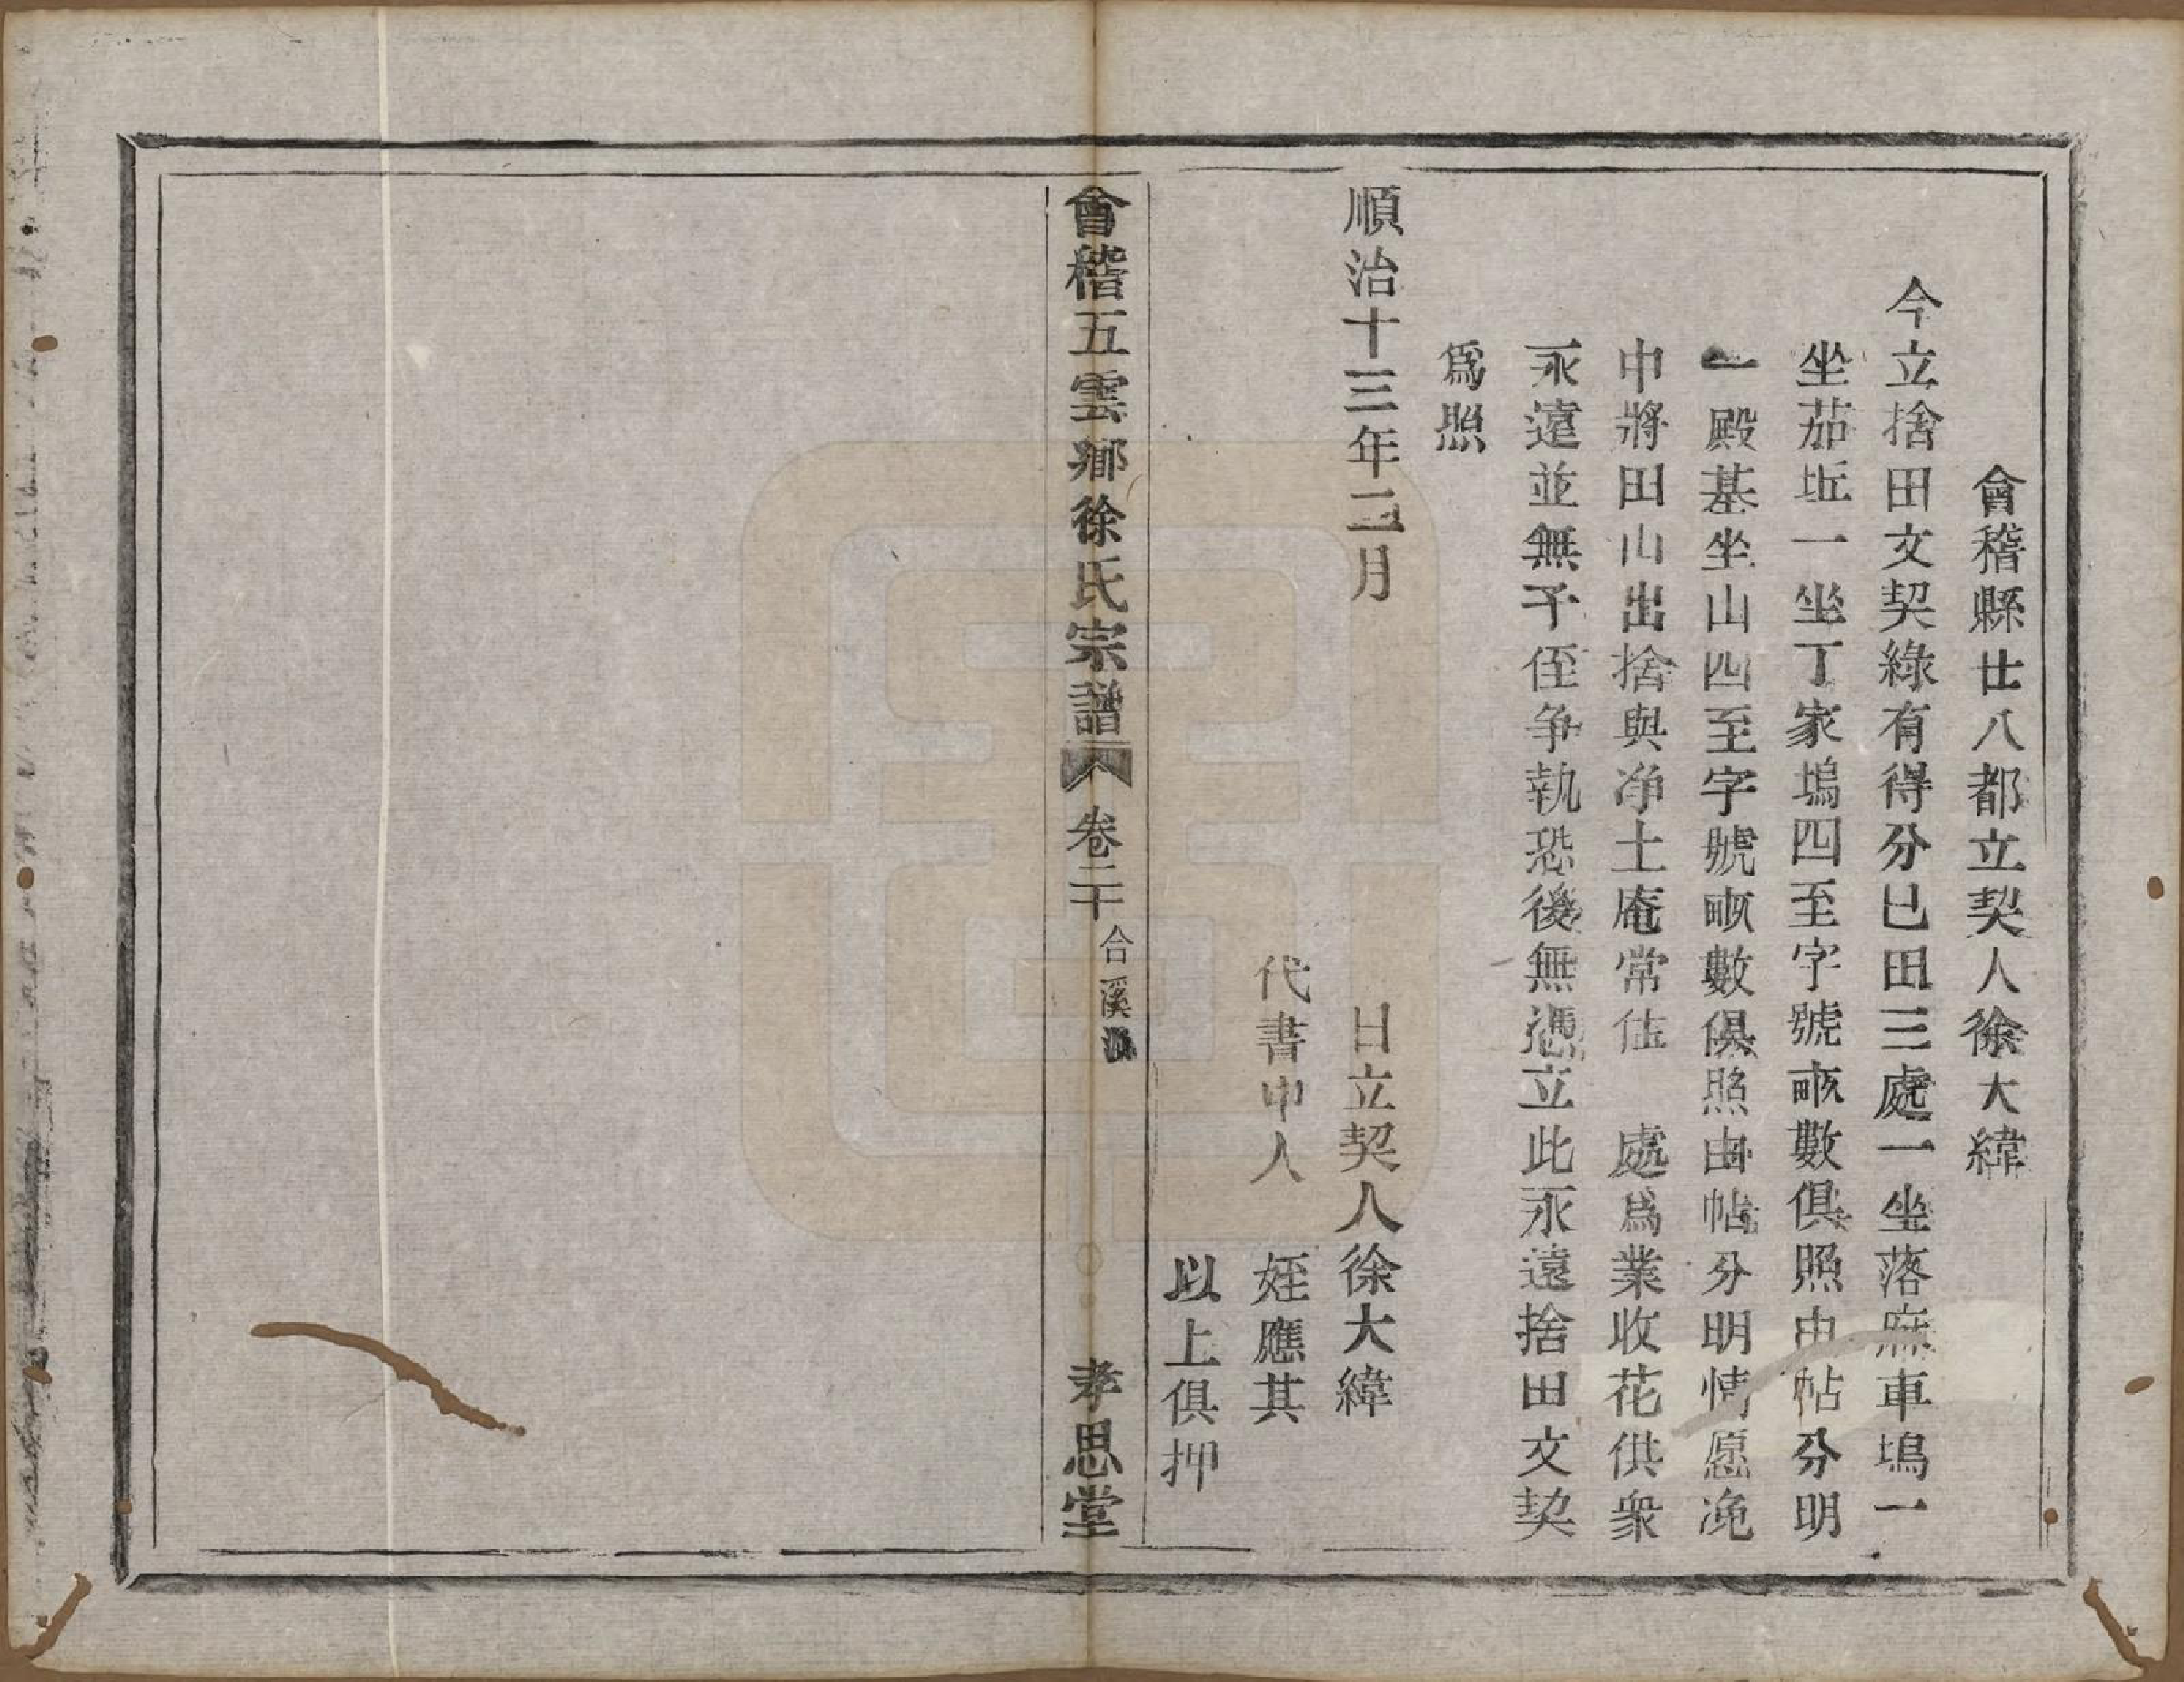 會稽縣廿八都立契人徐大緯
今立捨田文契緣有得分已田三處一坐落麻車塢一
坐茄坵一坐丁家塢四至字號畝數俱照由帖分明
一殿基坐山四至字號畝數俱照由帖分明情愿凂
中將田山出捨與净土庵常住　處爲業收花供衆
永遠並無予侄争執恐後無憑立此永遠捨田文契
爲照
順治十三年二月　　日立契人徐大緯
代書中人　姪應其
以上俱押
會稽五雲鄉徐氏宗譜　卷二十　合溪　孝思堂